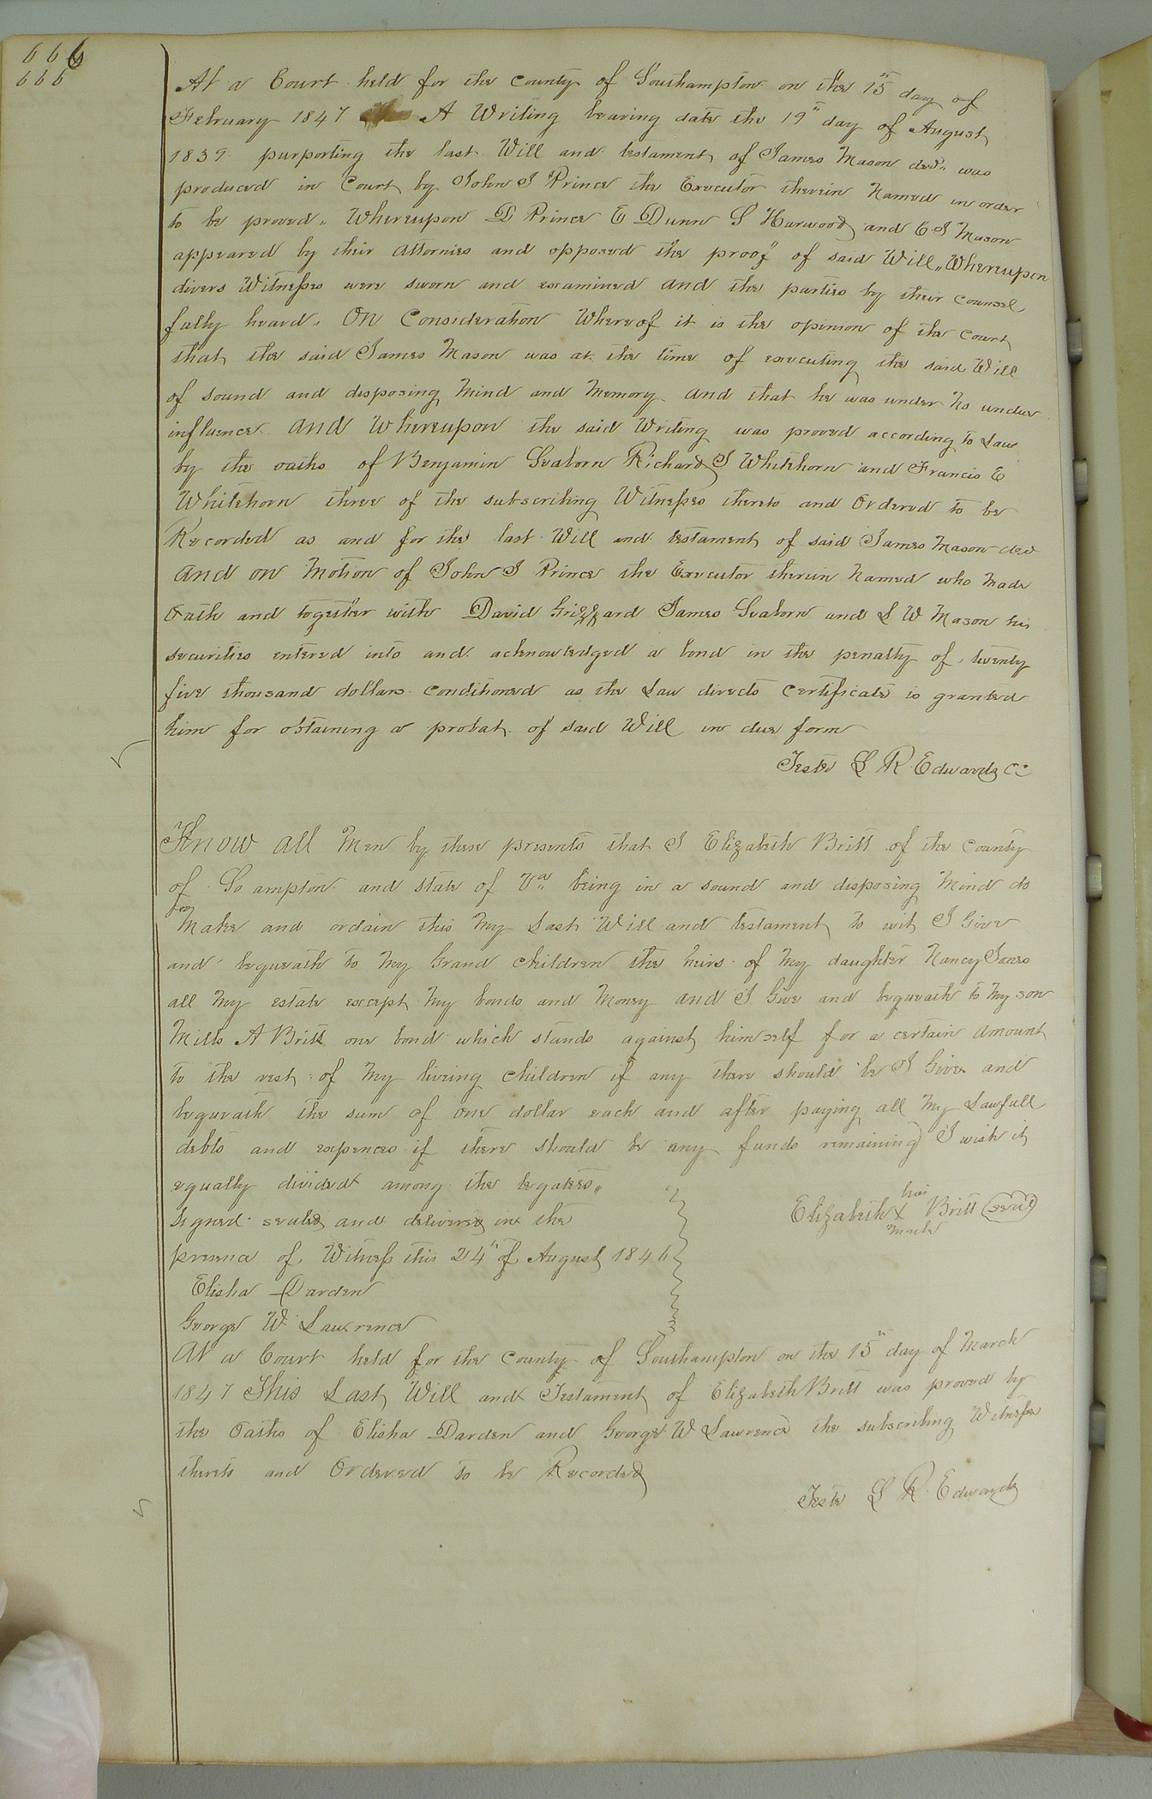 666
666
At a Court held for the county of Southampton on the 15th day of
February 1847 A Writing bearing date the 19th day of August
1839 purporting the last Will and testament of James Mason decd. was
produced in Court by John J Prince the Executor therein Named in order
to be proved, Whereupon D Prince E Dunn S Harwood and E S Mason
appeared by their Attornies and opposed the proof of said Will, Whereupon
divers Witnesses were sworn and examined and the parties by their counsel
fully heard. On Consideration Whereof it is the opinion of the Court
that the said James Mason was at the time of executing the said Will
of sound and disposing Mind and Memory and that he was under No undue
influence and Whereupon the said Writing was proved according to Law
by the oaths of Benjamin Seaborn Richard J Whitehorn and Francis E
Whitehorn three of the subscribing Witnesses thereto and Ordered to be
Recorded as and for the last Will and testament of said James Mason decd
And on Motion of John J Prince the Executor therein Named who Made
Oath and together with David Grizzard James Seaborn and L W Mason his
securities entered into and acknowledged a bond in the penalty of twenty
five thousand dollars conditioned as the Law directs certificate is granted
him for obtaining a probat of said Will in due form
Teste L R Edwards Cc
Know all Men by these presents that I Elizabeth Britt of the county
of So ampton and state of Va being in a sound and disposing Mind do
Make and ordain this My Last Will and testament to wit I Give
and bequeath to My Grand children the heirs of My daughter Nancy Jones
all My estate except My bonds and Money and I Give and bequeath to My son
Mills A Britt one bond which stands against himself for a certain amount
to the rest of My living children if any there should be I Give and
bequeath the sum of one dollar each and after paying all My Lawfull
debts and expences if there should be any funds remaining I wish it
equally divided among the legatees,
Signed sealed and delivered in the
presence of Witness this 24th of August 1846
Elizabeth her X mark Britt (seal)
Elisha Darden
George W Lawrence
At a Court held for the County of Southampton on the 15th day of March
1847 This Last Will and Testament of Elizabeth Britt was proved by
the Oaths of Elisha Darden and George W Lawrence the subscribing Witnesses
thereto and Ordered to be Recorded
Teste L R Edwards